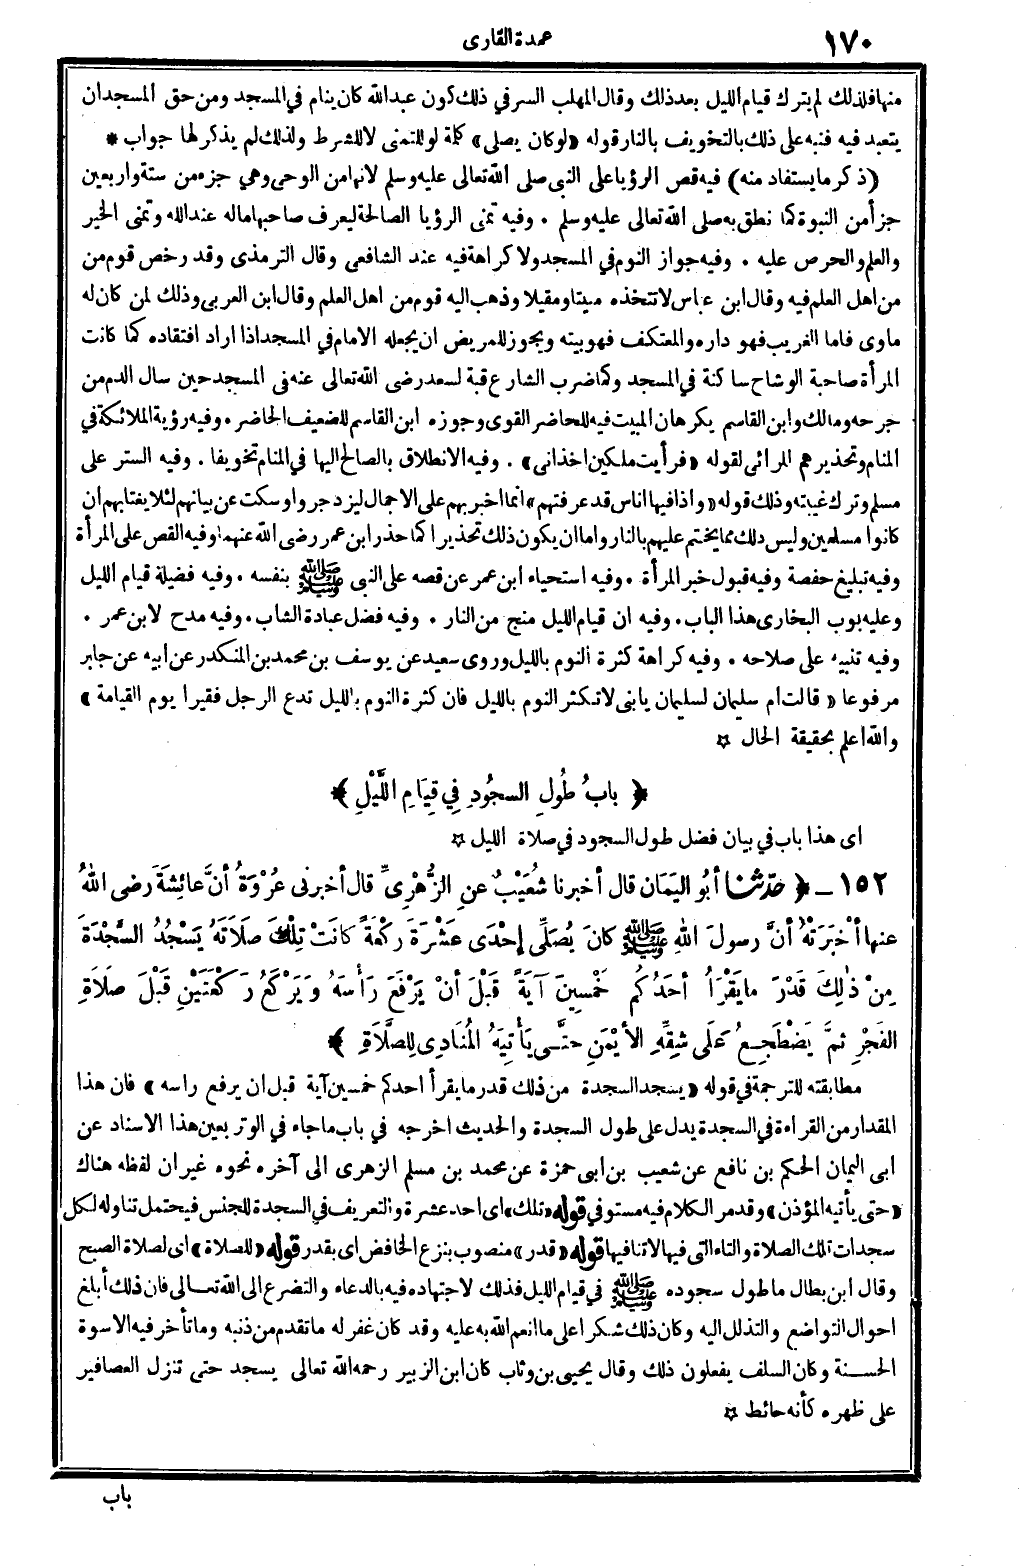 ١٧٠
عمدة القارى
منها فلذلك لم يترك قيام الليل بعد ذلك وقال المهلب السر في ذلك كون عبدالله كان ينام في المسجد ومن حق المسجد ان
يتعبد فيه فنبه على ذلك بالتخويف بالنار قوله «لو كان يصلى» كلمة لو للتمنى لا للشرط ولذلك لم يذكر لها جواب *
(ذكر ما يستفاد منه) فيه قص الرؤيا على النبى صلى الله تعالى عليه وسلم لانها من الوحى وهي جزء من ستة واربعين
جزأ من النبوة كما نطق به صلى الله تعالى عليه وسلم . وفيه تمنى الرؤيا الصالحة ليعرف صاحبها ماله عند الله وتمنى الخير
والعلم والحرص عليه . وفيه جواز النوم في المسجد ولا كراهة فيه عند الشافعى وقال الترمذى وقد رخص قوم من
من اهل العلم فيه وقال ابن عباس لا تتخذه مبيتا ومقيلا وذهب اليه قوم من اهل العلم وقال ابن العربى وذلك لمن كان له
ماوى فاما الغريب فهو داره والمعتكف فهو بيته ويجوز للمريض ان يجعله الامام في المسجد اذا اراد افتقاده كما كانت
المرأة صاحبة الوشاح ساكنة في المسجد وكما ضرب الشارع قبة لسعد رضى الله تعالى عنه في المسجد حين سال الدم من
جرحه ومالك وابن القاسم يكرهان المبيت فيه للحاضر القوى وجوزه ابن القاسم للضعيف الحاضر . وفيه رؤية الملائكة في
المنام وتحذيرهم المرائى لقوله «فرأيت ملكين اخذانى» . وفيه الانطلاق بالصالح اليها في المنام تخويفا . وفيه الستر على
مسلم وترك غيبته وذلك قوله «واذا فيها اناس قد عرفتهم» انما اخبر بهم على الاجمال ليزدجروا وسكت عن بيانهم لئلا يغتابهم ان
كانوا مسلمين وليس ذلك مما يختم عليهم بالنار واما ان يكون ذلك تحذيرا كما حذر ابن عمر رضى الله عنهما وفيه القص على المرأة
وفيه تبليغ حفصة وفيه قبول خبر المرأة . وفيه استحياء ابن عمر عن قصه على النبى ﷺ بنفسه . وفيه فضيلة قيام الليل
وعليه بوب البخارى هذا الباب . وفيه ان قيام الليل منج من النار . وفيه فضل عبادة الشاب . وفيه مدح لابن عمر .
وفيه تنبيه على صلاحه . وفيه كراهة كثرة النوم بالليل وروى سعيد عن يوسف بن محمد بن المنكدر عن ابيه عن جابر
مرفوعا «قالت ام سليمان لسليمان يابنى لا تكثر النوم بالليل فان كثرة النوم بالليل تدع الرجل فقيرا يوم القيامة»
والله اعلم بحقيقة الحال ☆
﴿ بابُ طُولِ السجُودِ فِي قِيَامِ اللَّيْلِ ﴾
اى هذا باب في بيان فضل طول السجود في صلاة الليل ☆
١٥٢ ـ ﴿ حَدَّثَنَا أبُو اليَمَانِ قال أخبرنا شُعَيْبٌ عنِ الزُّهْرِىِّ قال أخبرنى عُرْوَةُ أنَّ عائِشَةَ رضى اللهُ
عنها أخْبَرَتْهُ أنَّ رسولَ اللهِ ﷺ كانَ يُصَلِّى إحْدَى عَشْرَةَ رَكْعَةً كانَتْ تِلْكَ صَلاَتَهُ يَسْجُدُ السَّجْدَةَ
مِنْ ذٰلِكَ قَدْرَ مايَقْرَأُ أحَدُكُم خَمْسِينَ آيَةً قَبْلَ أنْ يَرْفَعَ رَأسَهُ ويَرْكَعُ رَكْعَتَيْنِ قَبْلَ صَلَاةِ
الفَجْرِ ثمَّ يَضْطَجِعُ عَلَى شِقِّهِ الأيْمَنِ حتَّى يَأتِيَهُ المُنَادِى لِلصَّلَاةِ ﴾
مطابقته للترجمة في قوله «يسجد السجدة من ذلك قدر ما يقرأ احدكم خمسين آية قبل ان يرفع راسه» فان هذا
المقدار من القراءة في السجدة يدل على طول السجدة والحديث اخرجه في باب ما جاء في الوتر بعين هذا الاسناد عن
ابى اليمان الحكم بن نافع عن شعيب بن ابى حمزة عن محمد بن مسلم الزهرى الى آخره نحوه غير ان لفظه هناك
«حتى يأتيه المؤذن» وقد مر الكلام فيه مستوفى قوله «تلك» اى احد عشرة والتعريف في السجدة للجنس فيحتمل تناوله لكل
سجدات تلك الصلاة والتاء التى فيها لا تنافيها قوله «قدر» منصوب بنزع الخافض اى بقدر قوله «للصلاة» اى لصلاة الصبح
وقال ابن بطال ما طول سجوده ﷺ في قيام الليل فذلك لاجتهاده فيه بالدعاء والتضرع الى الله تعالى فان ذلك أبلغ
احوال التواضع والتذلل اليه وكان ذلك شكرا على ما انعم الله به عليه وقد كان غفر له ما تقدم من ذنبه وما تأخر فيه الاسوة
الحسنة وكان السلف يفعلون ذلك وقال يحيى بن وثاب كان ابن الزبير رحمه الله تعالى يسجد حتى تنزل العصافير
على ظهره كأنه حائط ☆
باب